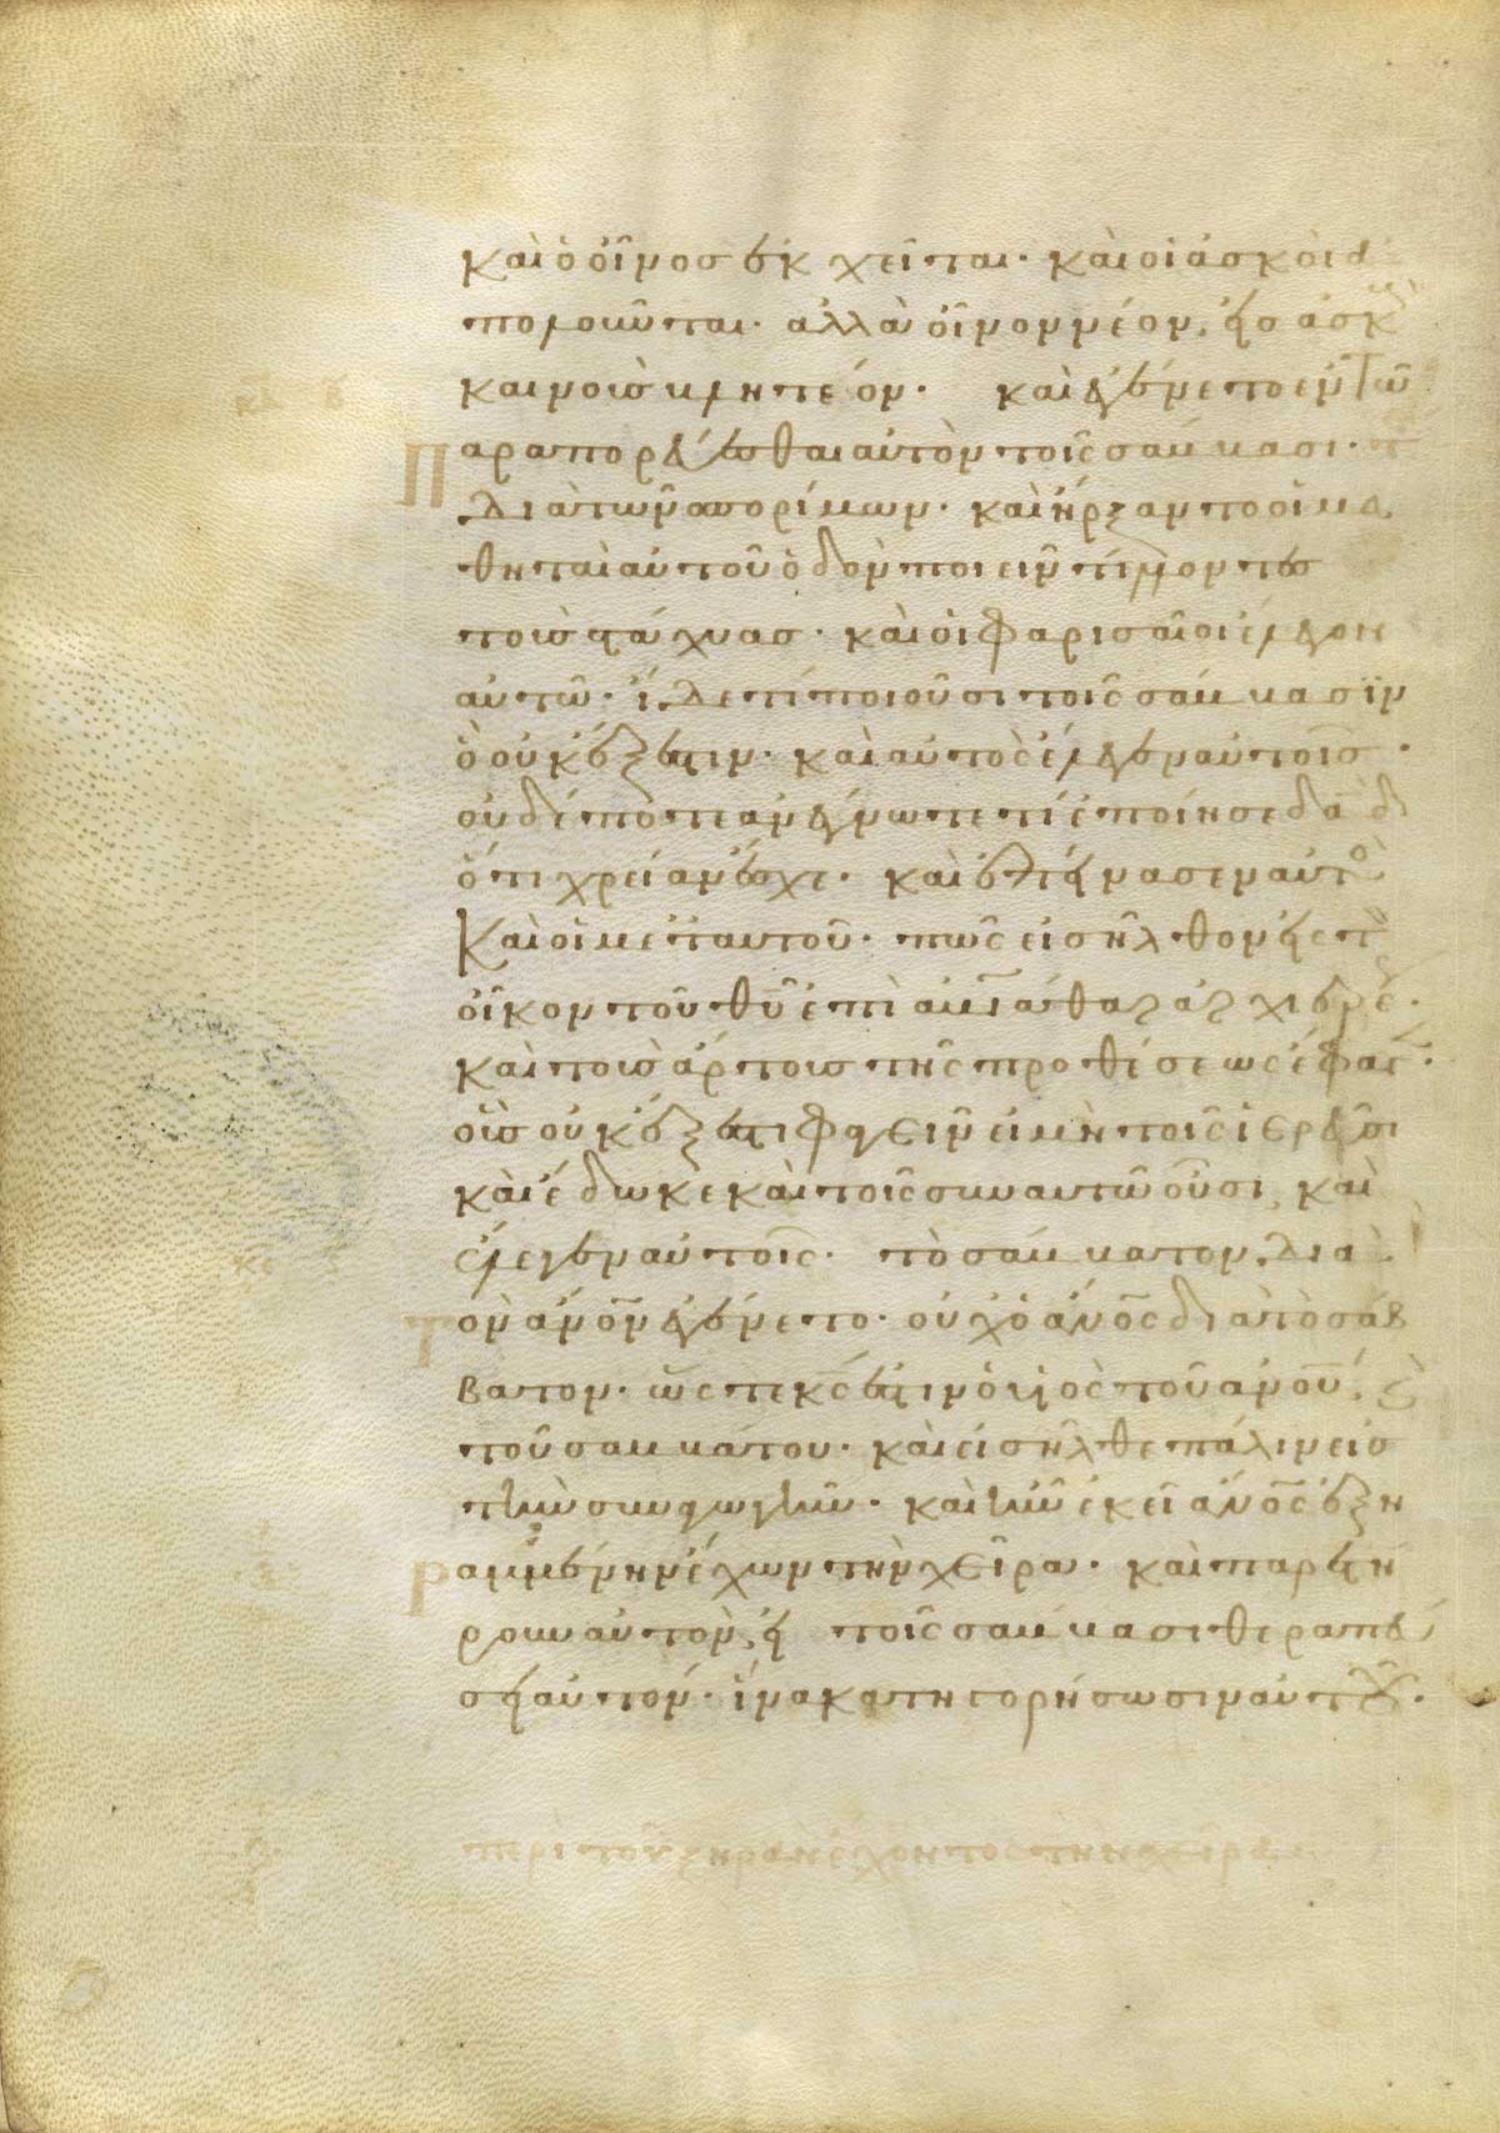 καὶ ὁ οἶνοσ ἐκχεῖται· καὶ οἱ ἀσκοὶ ἀ
πολοῦνται· ἀλλὰ οἶνον νέον, εἰσ ἀσκοὺ
καινοὺσ βλητέον· καὶ ἐγένετο ἐν τῶ
Παραπορεύεσθαι αὐτὸν τοῖς σάββασι·
διὰ τῶν σπορίμων· καὶ ἤρξαντο οἱ μα
θηταὶ αὐτοῦ ὁδὸν ποιεῖν τίλλοντεσ
τοὺσ στάχυασ· καὶ οἱ φαρισαῖοι ἔλεγον
αὐτῶ· ἴδε τί ποιοῦσι τοῖς σάββασϊν
ὃ οὐκ ἔξεστιν· καὶ αὐτὸς ἔλεγεν αὐτοῖσ·
οὐδέποτε ἀνέγνωτε τί ἐποίησε δαδ
ὅτι χρείαν ἔσχε· καὶ ἐπείνασεν αὐτὸ
Καὶ οἱ μετ' αυτοῦ· πῶς εἰσῆλθον εἰς τὸ
οἶκον τοῦ θυ ἐπὶ ἀβιάθαρ ἀρχιερέ·
καὶ τοὺσ ἄρτουσ τῆς προθέσεως ἔφαγ·
οὓσ οὐκ ἔξεστι φαγεῖν εἰ μὴ τοῖς ἱερεῦσι
καὶ ἔδωκε καὶ τοῖς σὺν αυτῶ οὖσι, καὶ
ἔλεγεν αὐτοῖς· τὸ σάββατον, διὰ
Τὸν ἄνον ἐγένετο· οὐχ ὁ ἄνος διὰ τὸ σάβ
βατον· ὥστε κς ἐστιν ὁ υἱὸς τοῦ ἀνου,
τοῦ σαββάτου· καὶ εἰσῆλθε πάλιν εἰσ
τὴν συναγωγήν· καὶ ἦν ἐκεῖ ἄνος ἐξη
Ραμμένην ἔχων τὴν χεῖρα· καὶ παρετή
ρουν αὐτὸν, εἰ τοῖς σάββασι θεραπεύ
σει αὐτόν· ἵνα κατηγορήσωσιν αὐτοῦ·